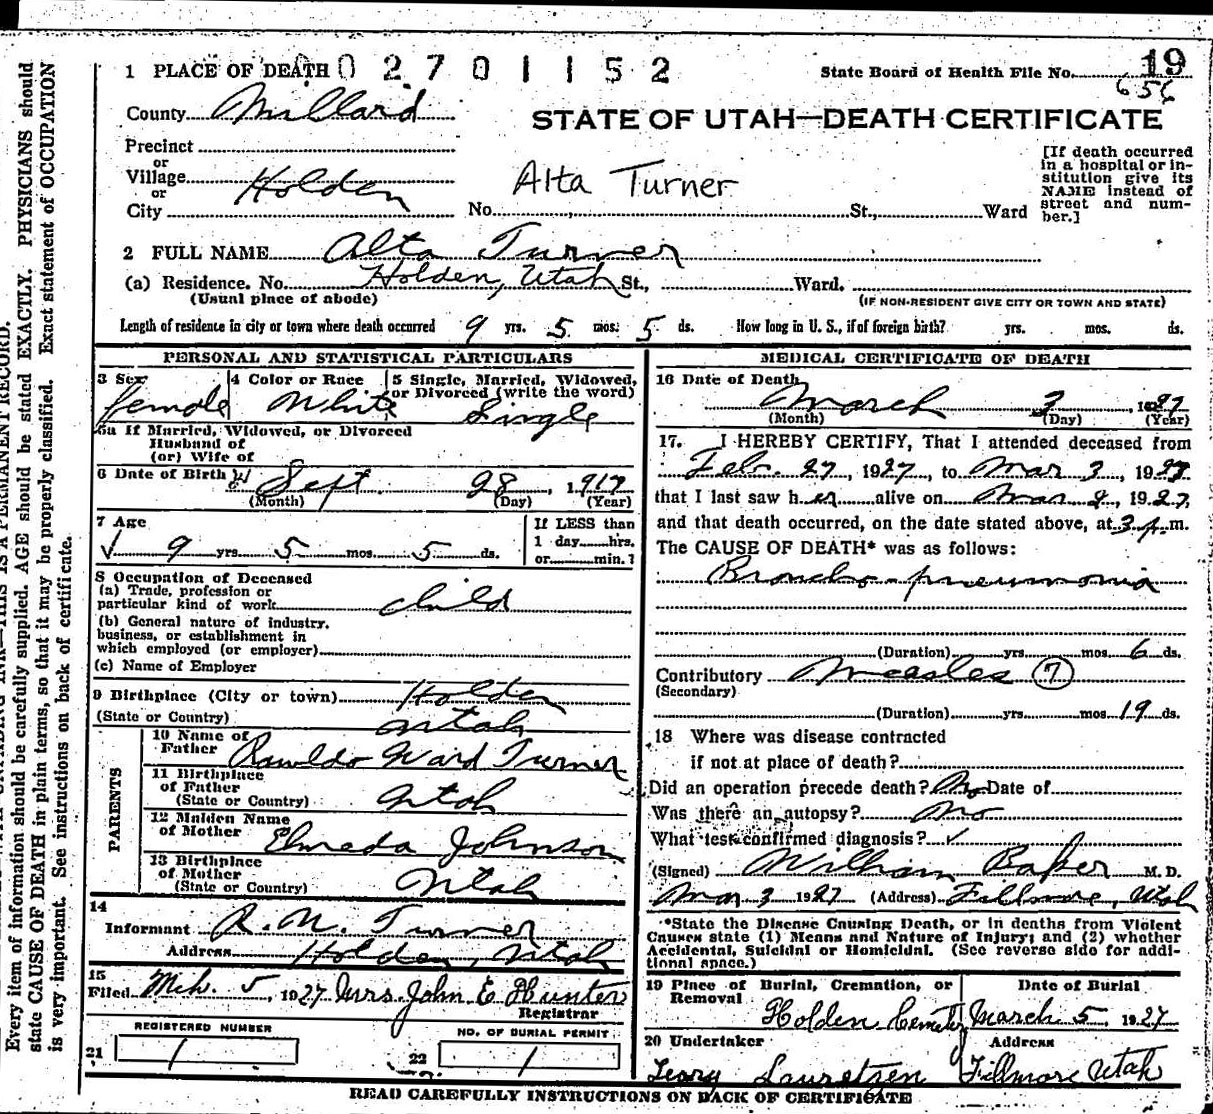 1 PLACE OF DEATH 0 0 2 7 0 1 1 5 2
State Board of Health File No. 19
656
County Millard
STATE OF UTAH—DEATH CERTIFICATE
Precinct
or
Village Holden
or
City
Alta Turner
No. St., Ward
[If death occurred
in a hospital or in-
stitution give its
NAME instead of
street and num-
ber.]
2 FULL NAME Alta Turner
(a) Residence. No. Holden, Utah St., Ward.
(Usual place of abode)
(IF NON-RESIDENT GIVE CITY OR TOWN AND STATE)
Length of residence in city or town where death occurred 9 yrs. 5 mos. 5 ds. How long in U. S., if of foreign birth? yrs. mos. ds.
PERSONAL AND STATISTICAL PARTICULARS
3 Sex female
4 Color or Race White
5 Single, Married, Widowed,
or Divorced (write the word)
Single
5a If Married, Widowed, or Divorced
Husband of
(or) Wife of
6 Date of Birth Sept. 28, 1917
(Month) (Day) (Year)
7 Age
9 yrs 5 mos. 5 ds.
If LESS than
1 day hrs.
or min.?
8 Occupation of Deceased
(a) Trade, profession or
particular kind of work child
(b) General nature of industry,
business, or establishment in
which employed (or employer)
(c) Name of Employer
9 Birthplace (City or town) Holden
(State or Country) Utah
PARENTS
10 Name of
Father Ward Turner
11 Birthplace
of Father
(State or Country) Utah
12 Maiden Name
of Mother Elmeda Johnson
13 Birthplace
of Mother
(State or Country) Utah
14
Informant Turner
Address Holden, Utah
15
Filed Mch. 5, 1927 Mrs. John E Hunter
Registrar
REGISTERED NUMBER
21 1
NO. OF BURIAL PERMIT
22 1
MEDICAL CERTIFICATE OF DEATH
16 Date of Death
March 3, 1927
(Month) (Day) (Year)
17. I HEREBY CERTIFY, That I attended deceased from
Feb. 27, 1927, to Mar 3, 1927
that I last saw her alive on Mar 2, 1927,
and that death occurred, on the date stated above, at 3 p. m.
The CAUSE OF DEATH* was as follows:
Broncho-pneumonia
(Duration) yrs mos 6 ds.
Contributory Measles 7
(Secondary)
(Duration) yrs mos 19 ds.
18 Where was disease contracted
if not at place of death?
Did an operation precede death? No Date of
Was there an autopsy? no
What test confirmed diagnosis? ✓
(Signed) William Baker M. D.
Mar 3 1927 (Address) Fillmore, Utah
*State the Disease Causing Death, or in deaths from Violent
Causes state (1) Means and Nature of Injury; and (2) whether
Accidental, Suicidal or Homicidal. (See reverse side for addi-
tional space.)
19 Place of Burial, Cremation, or
Removal
Holden Cemetery
Date of Burial
March 5, 1927
20 Undertaker
Lauretzen
Address
Fillmore Utah
READ CAREFULLY INSTRUCTIONS ON BACK OF CERTIFICATE
THIS IS A PERMANENT RECORD.
Every item of information should be carefully supplied. AGE should be stated EXACTLY. PHYSICIANS should
state CAUSE OF DEATH in plain terms, so that it may be properly classified. Exact statement of OCCUPATION
is very important. See instructions on back of certificate.